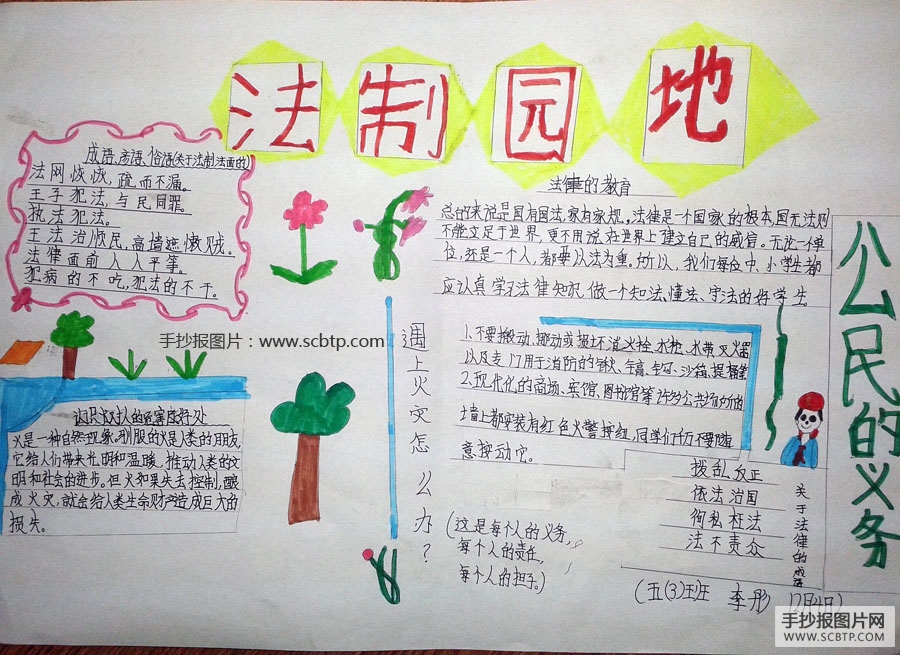 法制园地
成语、谚语、俗语(关于法制法面的)
法网恢恢，疏而不漏。
王子犯法，与民同罪。
执法犯法。
王法治顺民，高墙遮懒贼。
法律面前人人平等。
犯病的不吃，犯法的不干。
法律的教育
总的来说是国有国法，家有家规。法律是一个国家的根本国无法则
不能立足于世界，更不用说在世界上建立自己的威信。无论一个单
位，还是一个人，都要以法为重。所以，我们每位中、小学生都
应认真学习法律知识 做一个知法、懂法、守法的好学生
公民的义务
手抄报图片：www.scbtp.com
认识火对人的危害及好处
火是一种自然现象。驯服的火是人类的朋友，
它给人们带来光明和温暖，推动人类的文
明和社会的进步。但火如果失去控制，酿
成火灾，就会给人类生命财产造成巨大的
损失。
遇上火灾怎么办？
1、不要搬动、挪动或损坏消火栓、水枪、水带、灭火器
以及专门用于消防的锹、镐、钩、沙箱、提桶等
2、现代化的商场、宾馆、图书馆等许多公共场所的
墙上都安装有红色火警按纽，同学们千万不要随
意按动它。
(这是每个人的义务，
每个人的责任，
每个人的担子。)
拨乱反正
依法治国
徇私枉法
法不责众
关于法律的成语
(五(3)班 李彤 12月4日)
手抄报图片网
WWW.SCBTP.COM